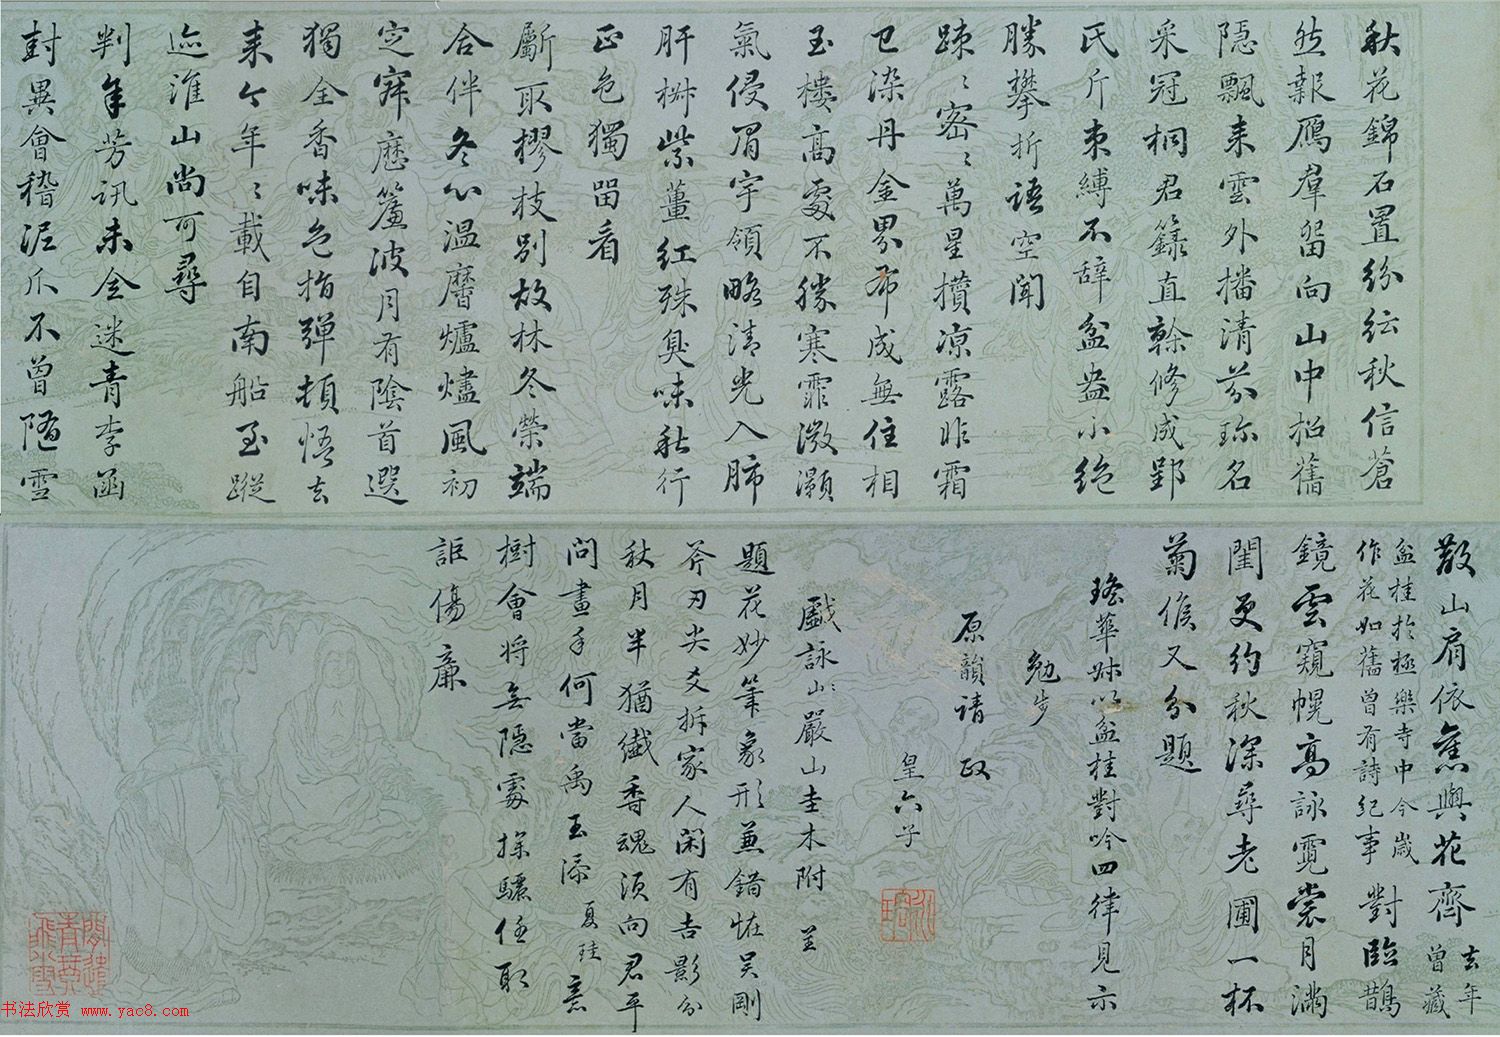 秋花錦石置紛紜秋信蒼
然報鴈羣留向山中招舊
隐飄来雲外播清芬珎名
采冠桐君籙直幹修成郢
氏斤束縛不辭盆盎小絶
勝攀折語空聞
踈〻密〻萬星攅凉露非霜
已染丹金界布成無住相
玉樓高處不勝寒霏微灝
氣侵眉宇領略清光入肺
肝椒紫薑紅殊臭味秋行
正色獨留看
斸取樛枝別故林冬榮端
合伴冬心温黁爐燼風初
定寐歴簾波月有陰首選
獨全香味色指彈頓悟去
来今年〻載自南船至蹤
迹淮山尚可尋
判年芳訊未全迷青李函
封異會稽泥爪不曾隨雪
散山肩依舊與花齊去年曾藏
盆桂於極樂寺中今歲
作花如舊曾有詩紀事對臨鵲
鏡雲窺幌高詠霓裳月滿
閨更約秋深尋老圃一杯
菊侯又分題
瑤華妹以盆桂對吟四律見示
勉步
原韻請政
皇六子
戲詠山〻嚴山圭木附呈
題花妙筆象形兼錯恠吴剛
斧刃尖爻拆家人閑有吉影分
秋月半猶纖香魂須向君平
問畫手何當禹玉添夏珪意
樹會将無隠處探驪任取
詎傷廉
书法欣赏 www.yac8.com